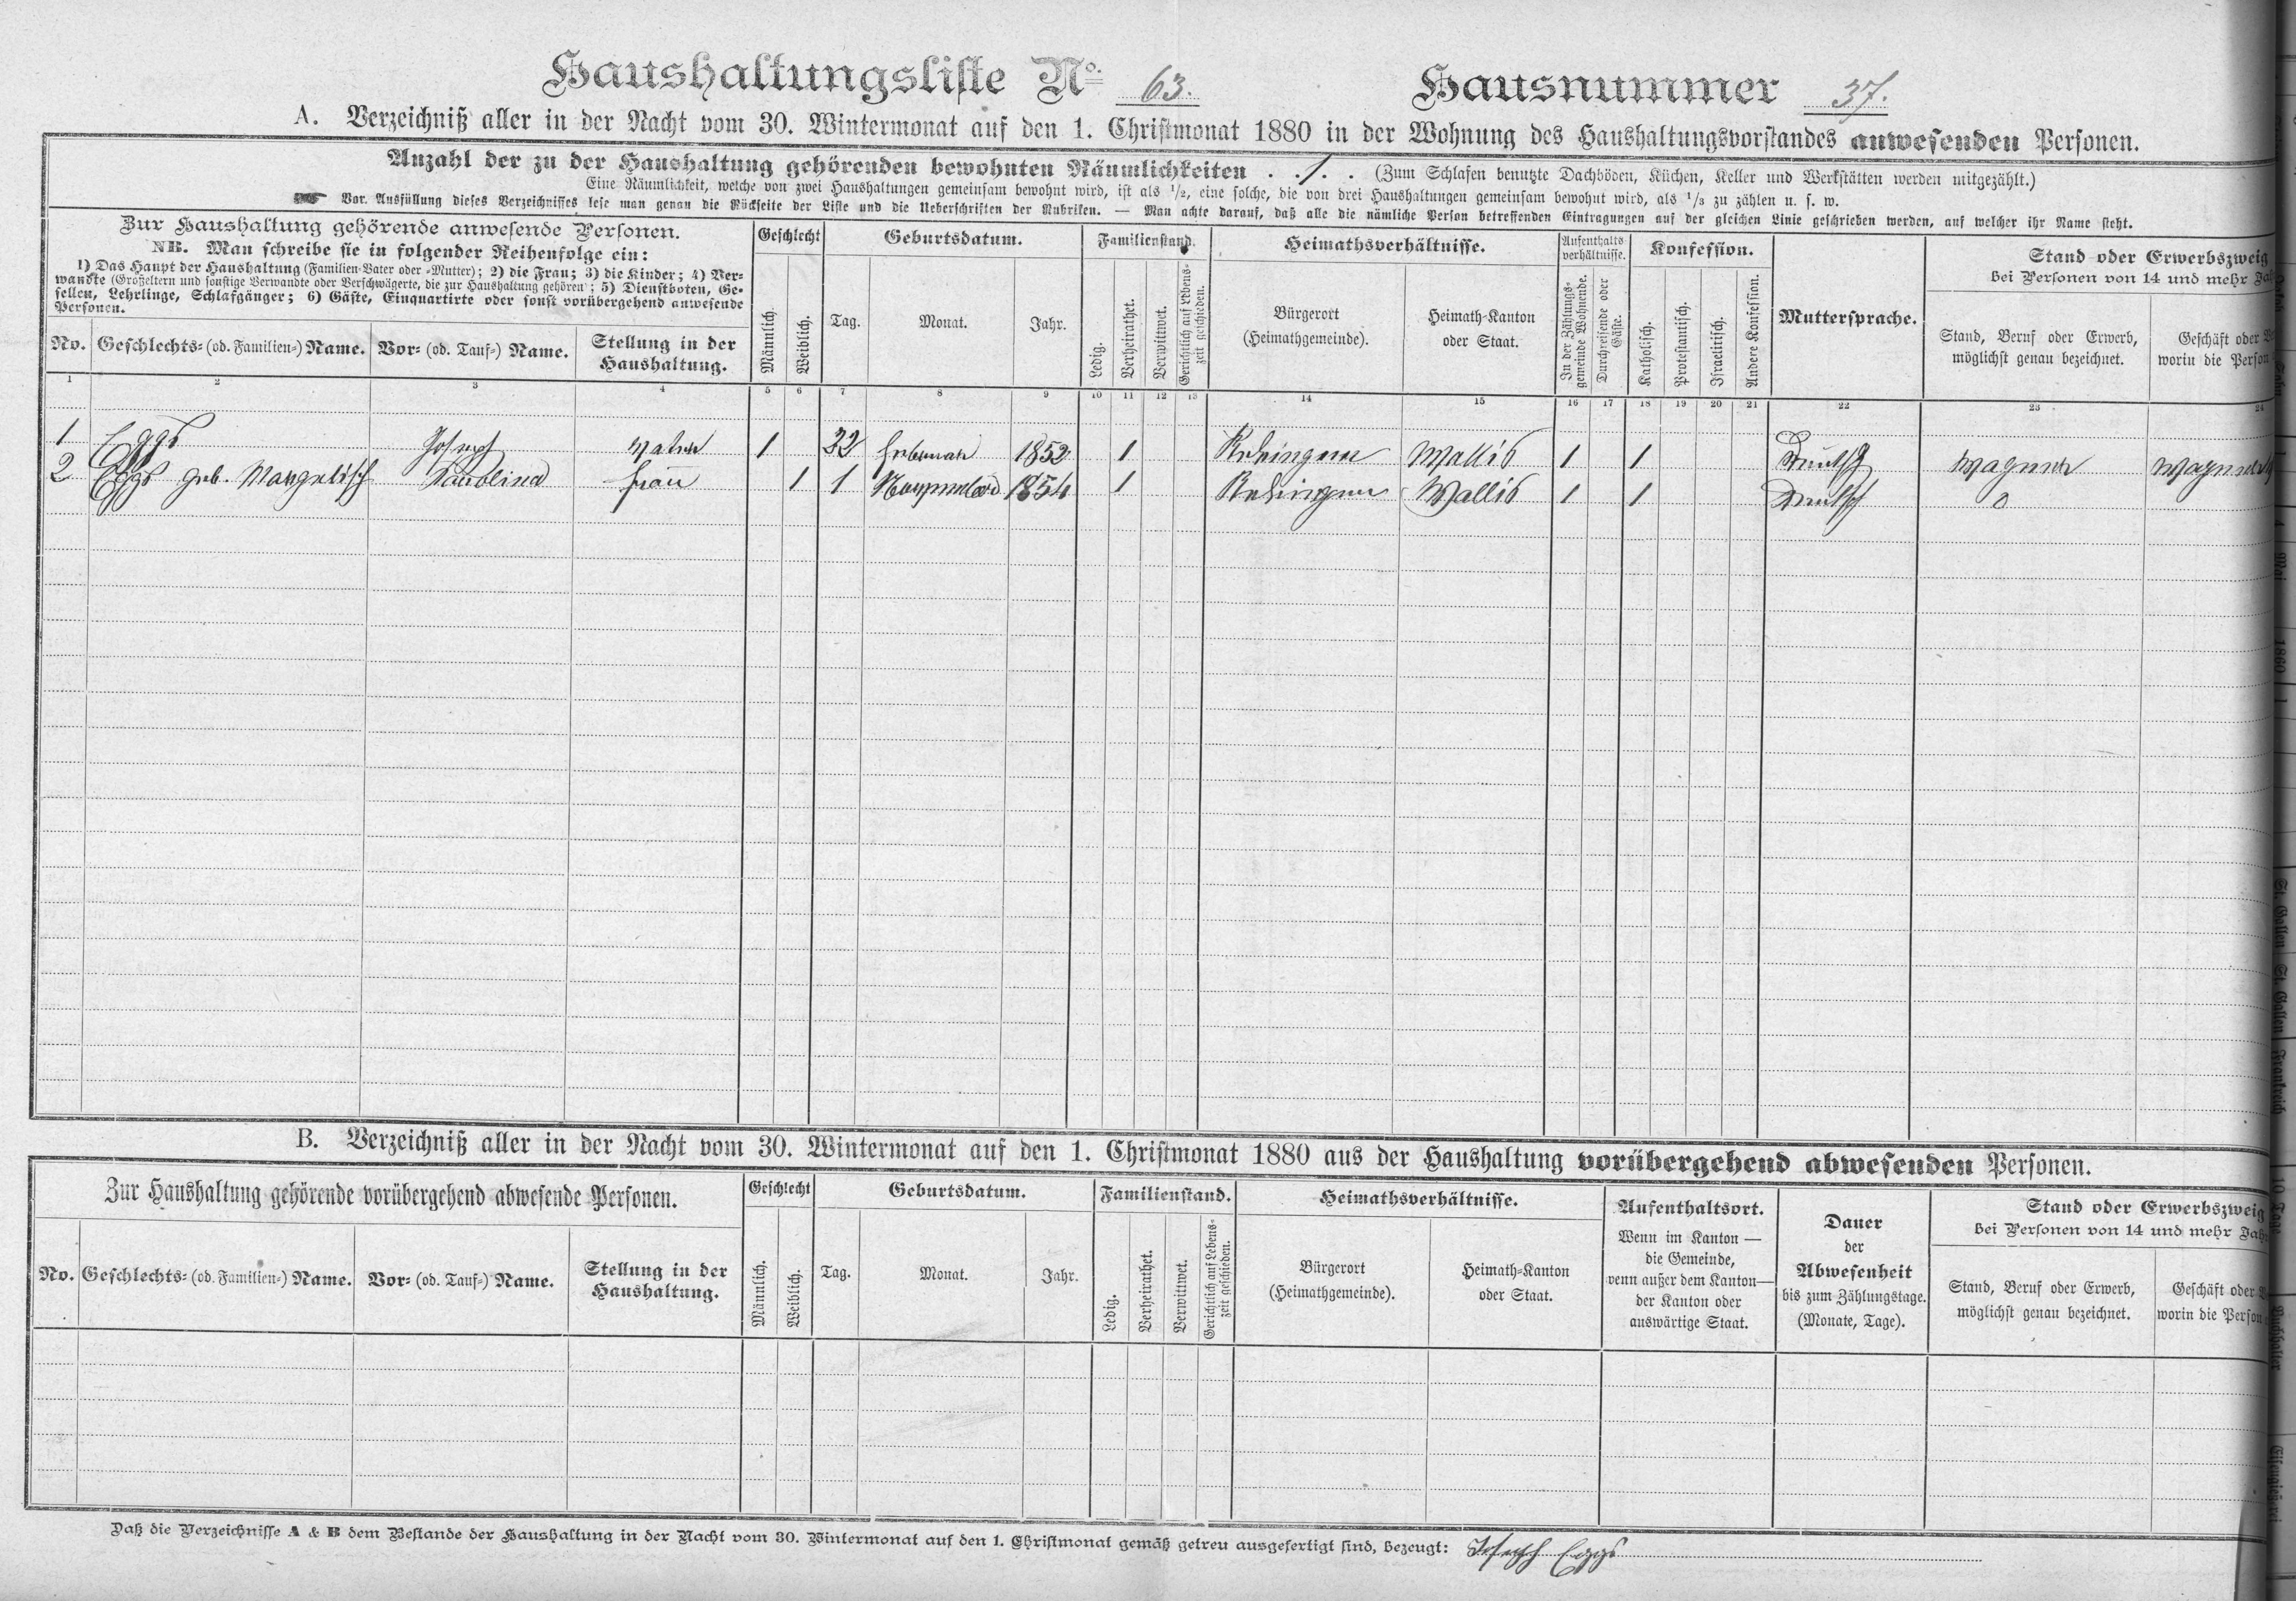 Haushaltungsliste No. 63. Hausnummer 37.
A. Verzeichniß aller in der Nacht vom 30. Wintermonat auf den 1. Christmonat 1880 in der Wohnung des Haushaltungsvorstandes anwesenden Personen.
Anzahl der zu der Haushaltung gehörenden bewohnten Räumlichkeiten . . 1 . . (Zum Schlafen benutzte Dachböden, Küchen, Keller und Werkstätten werden mitgezählt.)
Eine Räumlichkeit, welche von zwei Haushaltungen gemeinsam bewohnt wird, ist als 1/2, eine solche, die von drei Haushaltungen gemeinsam bewohnt wird, als 1/3 zu zählen u. s. w.
Vor Ausfüllung dieses Verzeichnisses lese man genau die Rückseite der Liste und die Ueberschriften der Rubriken. — Man achte darauf, daß alle die nämliche Person betreffenden Eintragungen auf der gleichen Linie geschrieben werden, auf welcher ihr Name steht.
Zur Haushaltung gehörende anwesende Personen.
NB. Man schreibe sie in folgender Reihenfolge ein:
1) Das Haupt der Haushaltung (Familien-Vater oder -Mutter); 2) die Frau; 3) die Kinder; 4) Ver-
wandte (Großeltern und sonstige Verwandte oder Verschwägerte, die zur Haushaltung gehören); 5) Dienstboten, Ge-
sellen, Lehrlinge, Schlafgänger; 6) Gäste, Einquartirte oder sonst vorübergehend anwesende
Personen.
No. Geschlechts- (od. Familien-) Name. Vor- (od. Tauf-) Name. Stellung in der
Haushaltung.
Geschlecht
Männlich. Weiblich.
Geburtsdatum.
Tag. Monat. Jahr.
Familienstand.
Ledig. Verheirathet. Verwittwet. Gerichtlich auf Lebens-
zeit geschieden.
Heimathsverhältnisse.
Bürgerort
(Heimathgemeinde).
Heimath-Kanton
oder Staat.
Aufenthalts
verhältnisse.
In der Zählungs-
gemeinde Wohnende.
Durchreisende oder
Gäste.
Konfession.
Katholisch. Protestantisch. Israelitisch. Andere Konfession.
Muttersprache.
Stand oder Erwerbszweig
bei Personen von 14 und mehr
Stand, Beruf oder Erwerb,
möglichst genau bezeichnet.
Geschäft oder
worin die Person
1 2 3 4 5 6 7 8 9 10 11 12 13 14 15 16 17 18 19 20 21 22 23 24
1 Eggs Joseph Vater 1 22 Februar 1852 1 Rekingen Wallis 1 1 Deutsch Wagner
2 Eggs geb. Mangelisch Frau 1 1 1854 1 Rekingen Wallis 1 1 Deutsch 0
B. Verzeichniß aller in der Nacht vom 30. Wintermonat auf den 1. Christmonat 1880 aus der Haushaltung vorübergehend abwesenden Personen.
Zur Haushaltung gehörende vorübergehend abwesende Personen.
No. Geschlechts- (od. Familien-) Name. Vor- (od. Tauf-) Name. Stellung in der
Haushaltung.
Geschlecht
Männlich. Weiblich.
Geburtsdatum.
Tag. Monat. Jahr.
Familienstand.
Ledig. Verheirathet. Verwittwet. Gerichtlich auf Lebens-
zeit geschieden.
Heimathsverhältnisse.
Bürgerort
(Heimathgemeinde).
Heimath-Kanton
oder Staat.
Aufenthaltsort.
Wenn im Kanton —
die Gemeinde,
wenn außer dem Kanton —
der Kanton oder
auswärtige Staat.
Dauer
der
Abwesenheit
bis zum Zählungstage.
(Monate, Tage).
Stand oder Erwerbszweig
bei Personen von 14 und mehr
Stand, Beruf oder Erwerb,
möglichst genau bezeichnet.
Geschäft oder
worin die Person
Daß die Verzeichnisse A & B dem Bestande der Haushaltung in der Nacht vom 30. Wintermonat auf den 1. Christmonat gemäß getreu ausgefertigt sind, bezeugt: Joseph Eggs